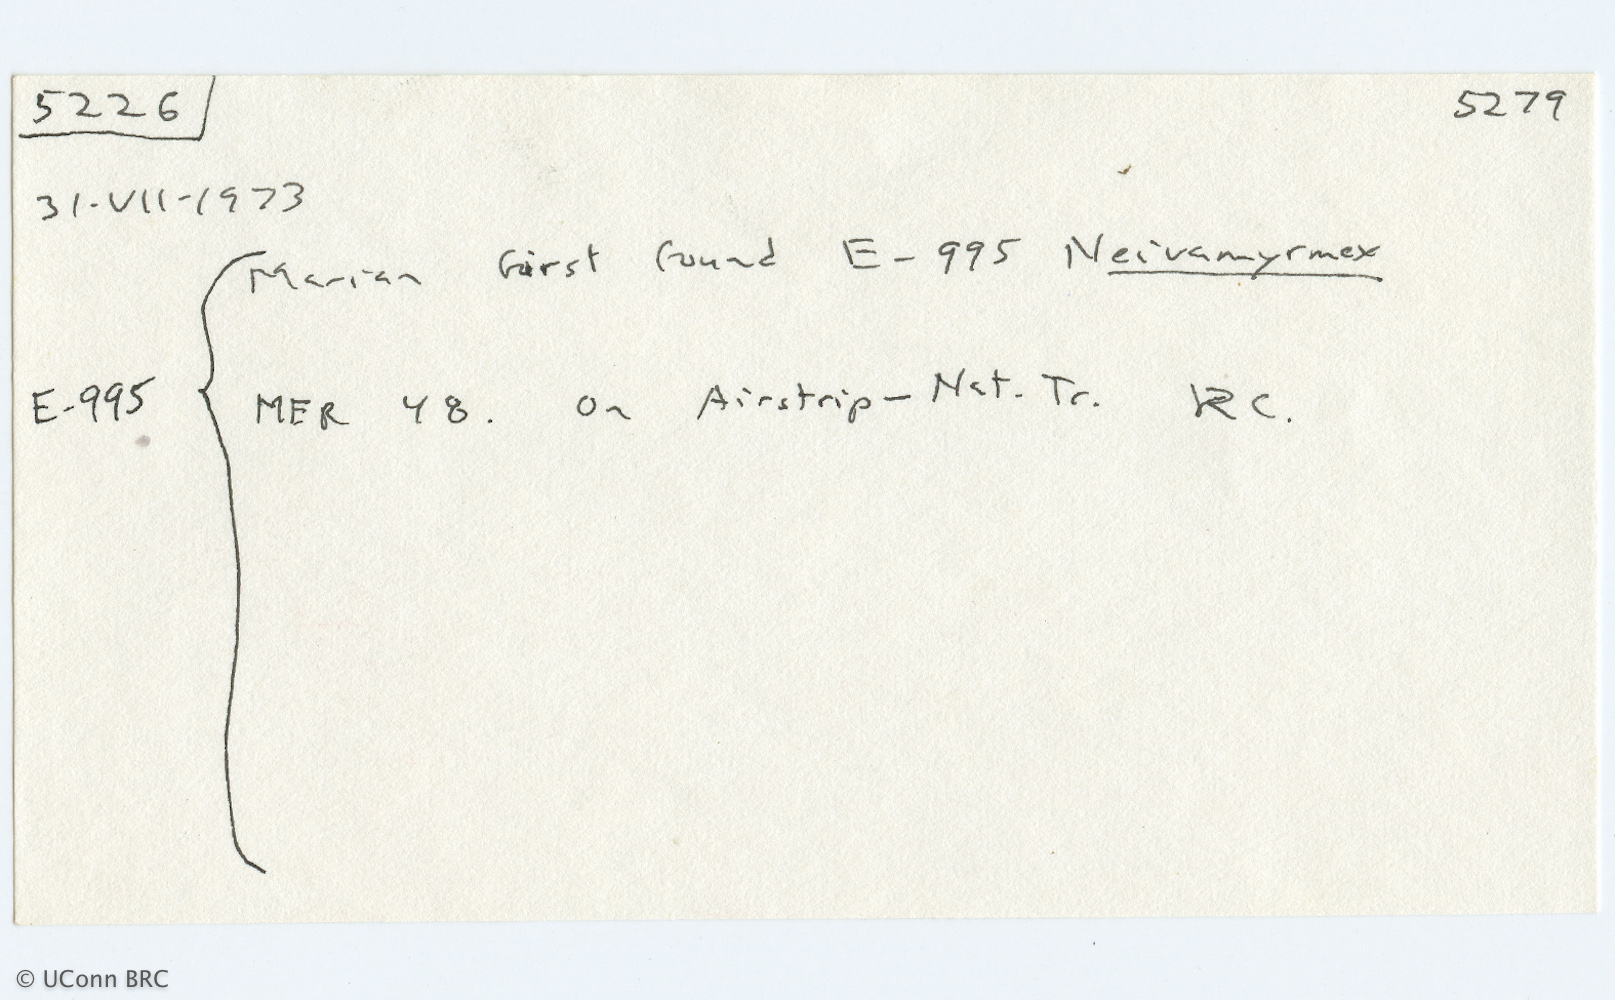 5226 5279
31-VII-1973
Marian first found E-995 Neivamyrmex
E-995 MER 48. on Airstrip-Nat. Tr. RC.
© UConn BRC